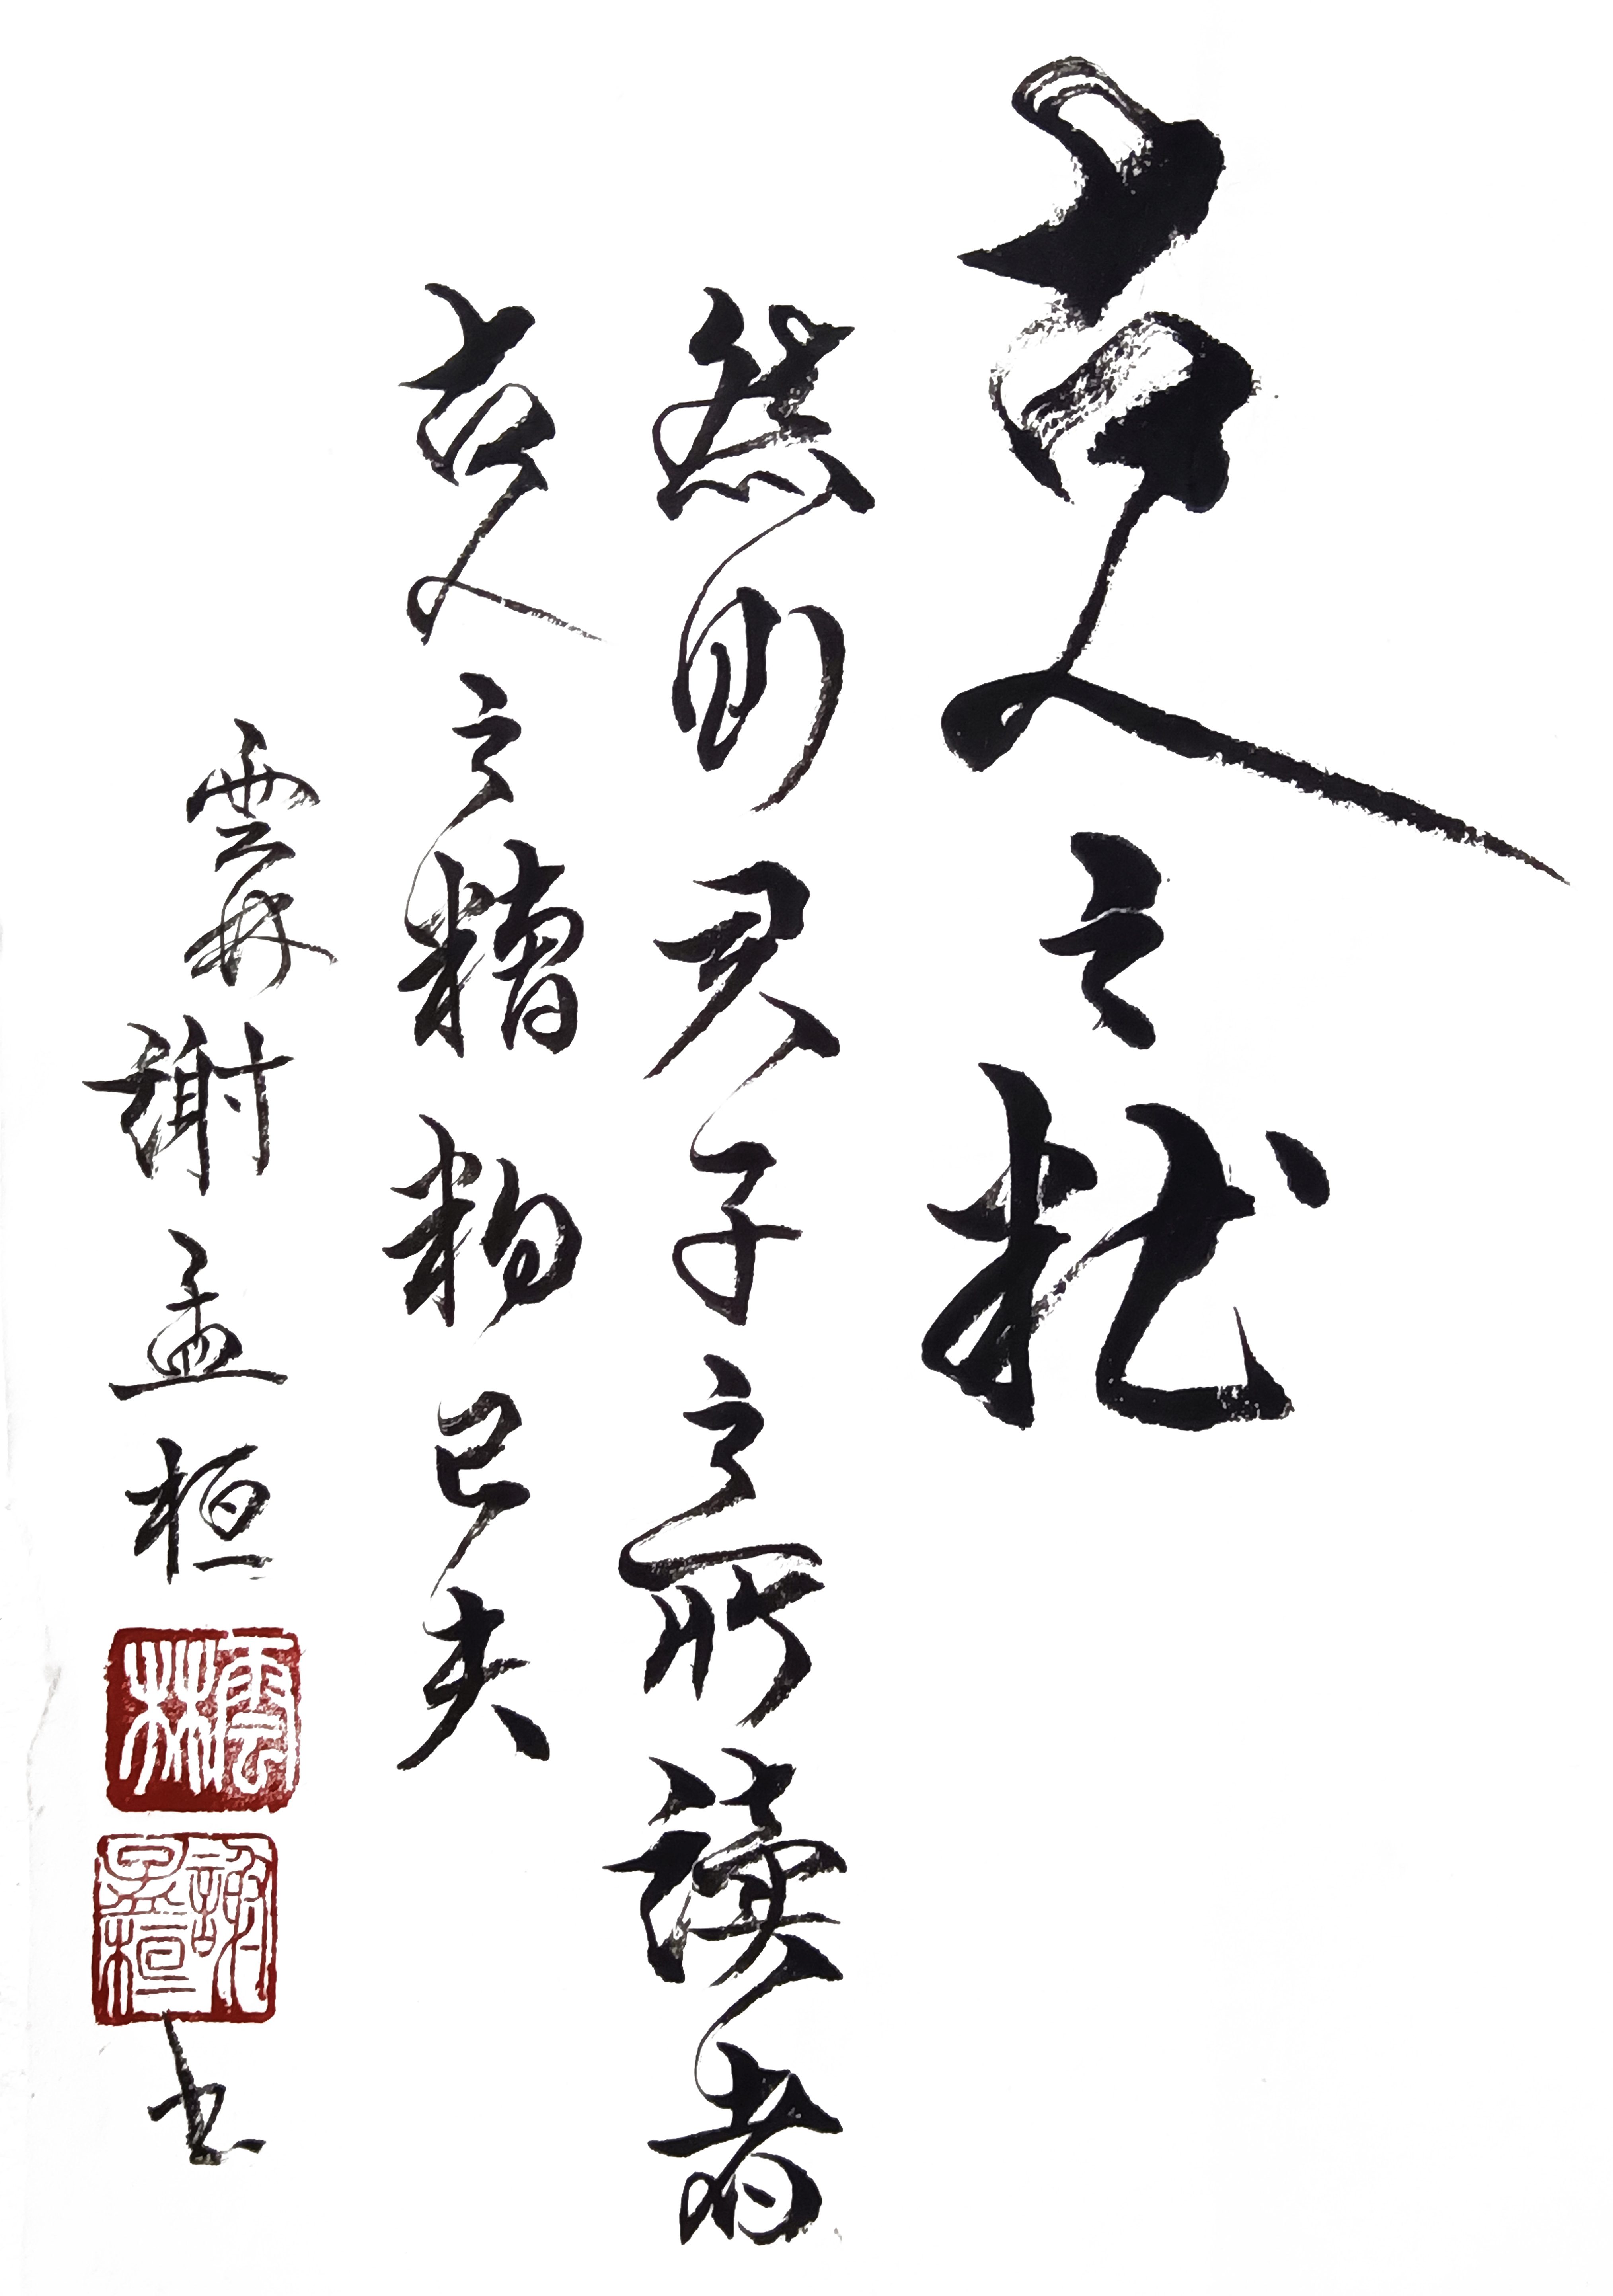 古人之
然則君子之所讀者
古人之糟粕已夫
雲林謝孟桓書
雲林
謝孟桓